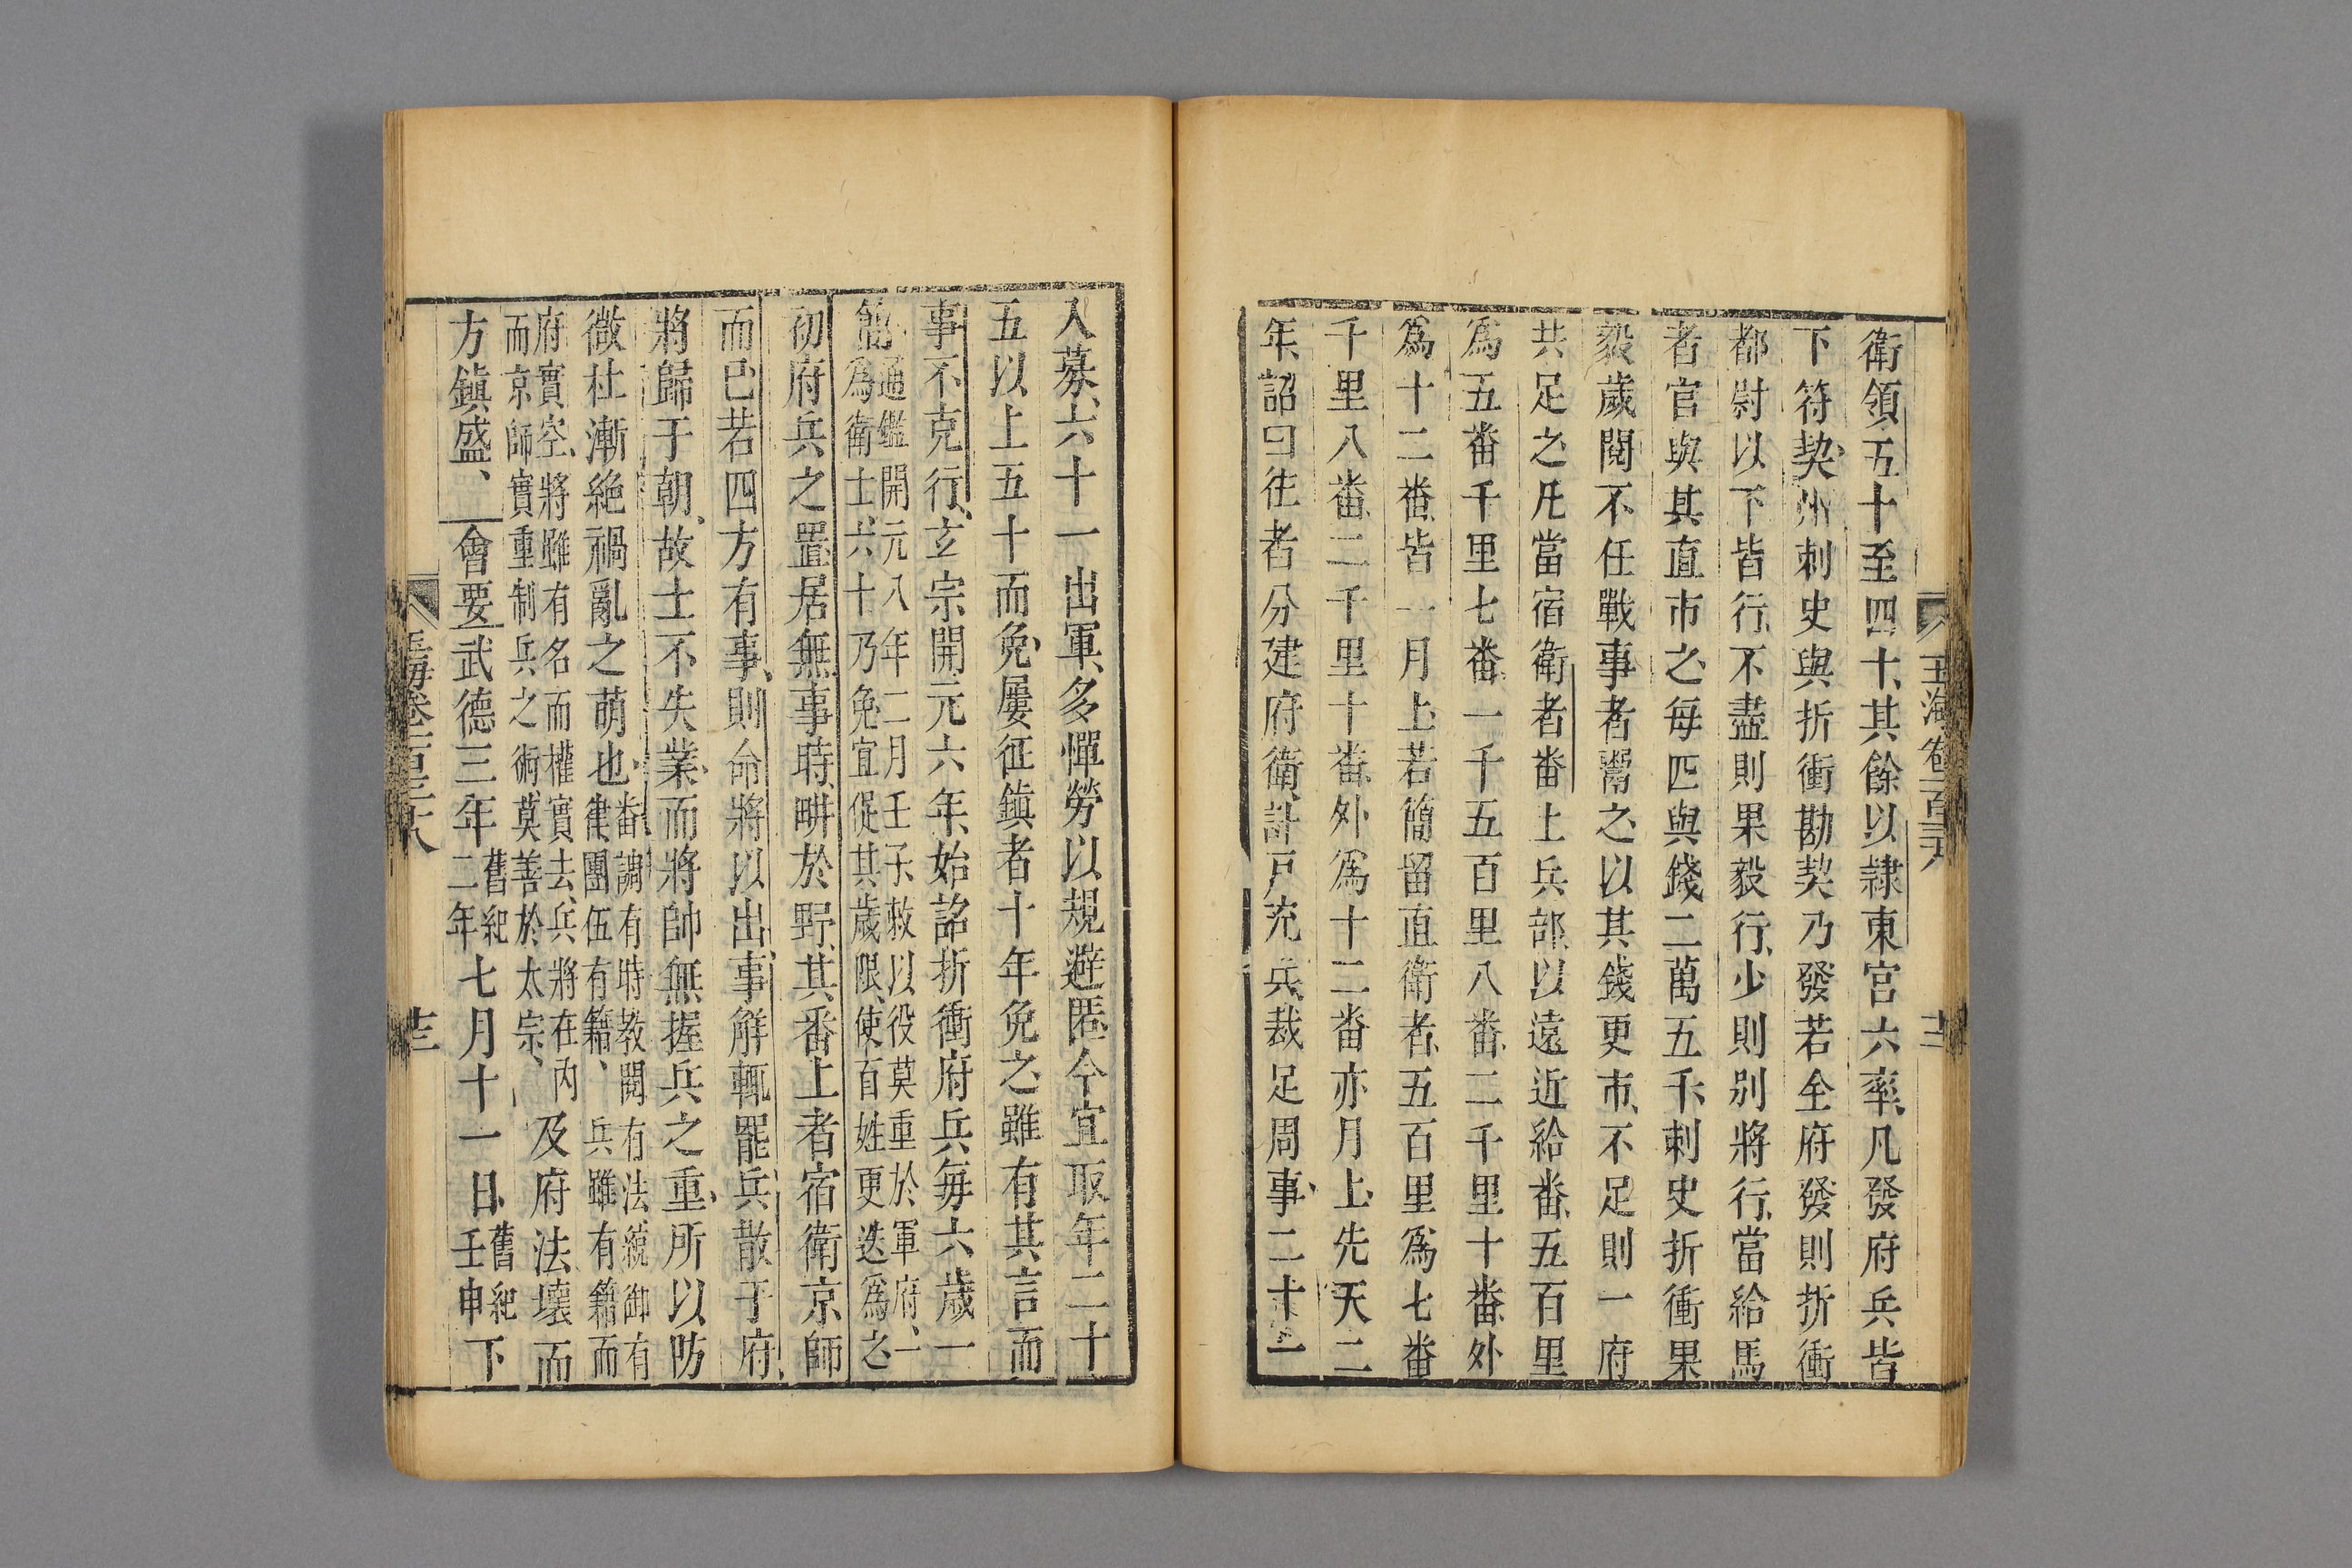 衛領五十至四十、其餘以隷東宮六率、凡發府兵皆
下符契、州刺史與折衝勘契乃發若全府發則折衝
都尉以下皆行、不盡則果毅行、少則別將行、當給馬
者官與其直市之、每匹與錢二萬五千、刺史折衝果
毅歲閱不任戰事者鬻之、以其錢更市、不足則一府
共足之、凡當宿衛者番上兵部、以遠近給番、五百里
爲五番千里七番、一千五百里八番、二千里十番、外
爲十二番、皆一月上、若簡留直衛者、五百里爲七番
千里八番、二千里十番、外爲十二番亦月上、先天二
年、詔曰往者分建府衛、計戶充兵、裁足周事、二十一
玉海卷一百三十八
十二
入募、六十一出軍、多憚勞以規避匿、今宜取年二十
五以上五十而免、屢征鎮者十年免之、雖有其言而
事不克行、玄宗開元六年、始詔折衝府兵每六歲一
簡、通鑑開元八年二月壬子、敕以役莫重於軍府、一
爲衛士六十乃免、宜促其歲限、使百姓更迭爲之
初府兵之置居無事時、畊於野、其番上者宿衛京師
而已若四方有事、則命將以出、事解輒罷、兵散于府、
將歸于朝、故士不失業、而將帥無握兵之重、所以防
微杜漸絶禍亂之萌也、番調有時教閱有法統御有
律團伍有籍、兵雖有籍而
府實空、將雖有名而權實去、兵將在內
而京師實重制兵之術、莫善於太宗、及府法壞而
方鎮盛、會要武德三年舊紀
二年七月十一日、舊紀
壬申下
玉海卷一百三十八
十三